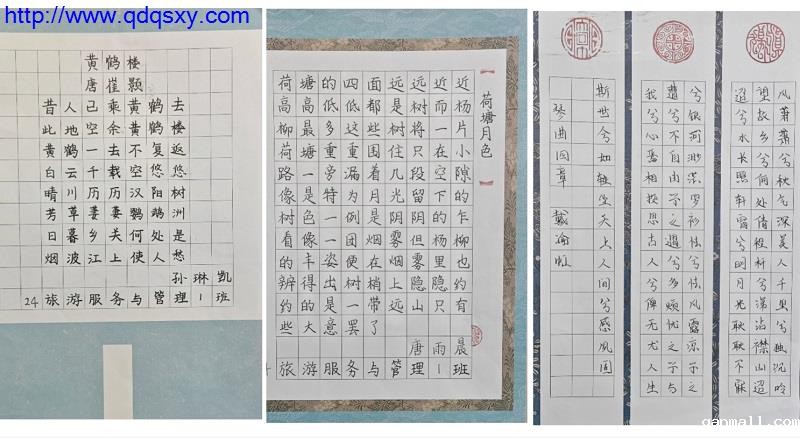 http://www.qdqsxy.com
黄鹤楼
唐崔颢
昔人已乘黄鹤去
此地空余黄鹤楼
黄鹤一去不复返
白云千载空悠悠
晴川历历汉阳树
芳草萋萋鹦鹉洲
日暮乡关何处是
烟波江上使人愁
孙琳凯
24旅游服务与管理1班
荷塘月色
荷塘的四面远远近近
高高低低都是树而杨
柳最多这些树将一片
荷塘重重围住只在小
路一旁漏着几段空隙
像是特为月光留下的
树色一例是阴阴的乍
看像一团烟雾但杨柳
的丰姿便在烟雾里也
辨得出树梢上隐隐约
约的是一带远山只有
些大意罢了
唐雨晨
旅游服务与管理1班
风萧萧兮秋气深美人千里兮独沉吟
望故乡兮何处倚
迢兮水长照轩
兮银河渺
我兮心焉相投思古人兮俾无尤人生
斯世兮如轻尘天上人间兮感夙因
琴曲四章